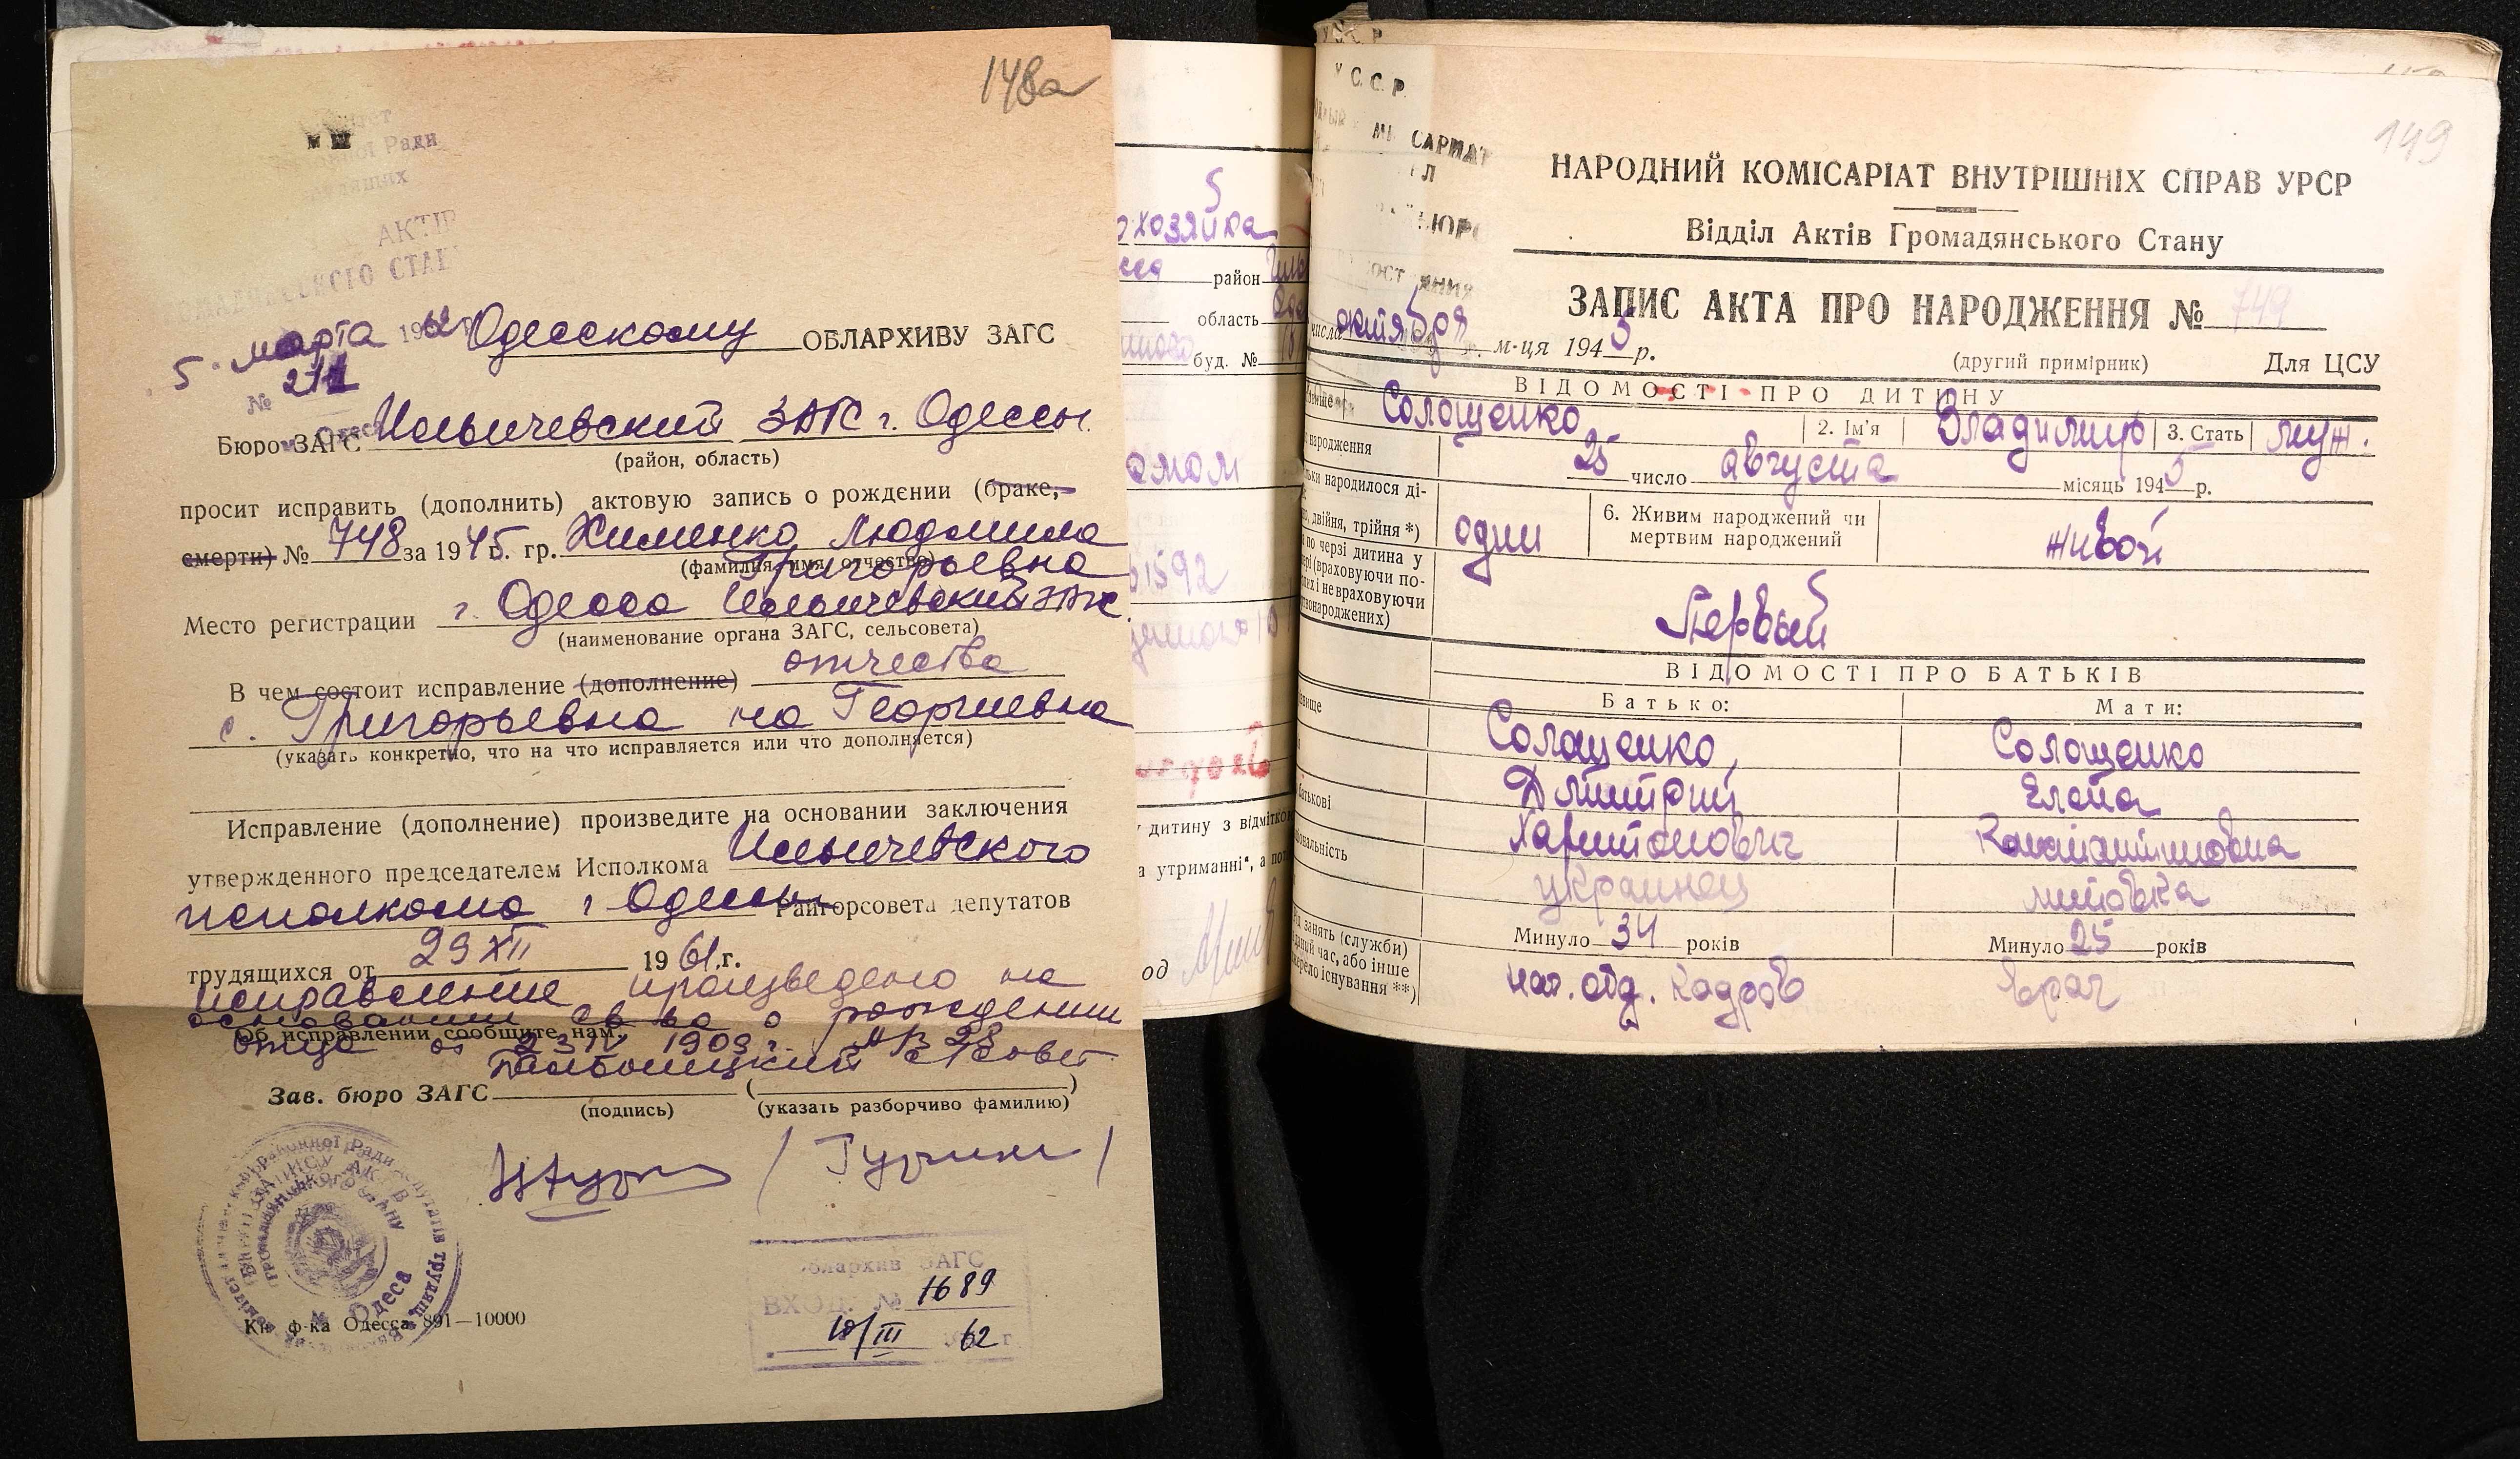 148а
ної Ради
АКТІВ
5. марта 1962 г.
Одесскому ОБЛАРХИВУ ЗАГС
№ 211
м. Одеса
Бюро ЗАГС Ильичевский ЗАГС г. Одессы.
(район, область)
просит исправить (дополнить) актовую запись о рождении (браке,
смерти) № 748 за 1945 г. гр. Хименко Людмила
(фамилия, имя, отчество)
Григорьевна
Место регистрации г. Одесса Ильичевский ЗАГС
(наименование органа ЗАГС, сельсовета)
В чем состоит исправление (дополнение) отчества
с. Григорьевна на Георгиевна
(указать конкретно, что на что исправляется или что дополняется)
Исправление (дополнение) произведите на основании заключения
утвержденного председателем Исполкома Ильичевского
исполкома г Одессы Райгорсовета депутатов
трудящихся от 29 XII 1961 г.
Исправление произведено на
основании св-ва о рождении
Об исправлении сообщите нам.
отца от 23 IV 1909 г. № 28
с/совет
Зав. бюро ЗАГС ( )
(подпись) (указать разборчиво фамилию)
м. Одеса
Кн. ф-ка Одесса 891—10000
Облархив ЗАГС
ВХОД. № 1689
10/III 1962 г
5
хозяйка
район
область
буд. №
1592
у дитину з відміткою
а утриманні", а пот
од
149
У С. С. Р.
НАРОДНИЙ КОМІСАРІАТ ВНУТРІШНІХ СПРАВ УРСР
Відділ Актів Громадянського Стану
ЗАПИС АКТА ПРО НАРОДЖЕННЯ № 749
числа октября м-ця 1945 р.
(другий примірник) Для ЦСУ
ВІДОМОСТІ ПРО ДИТИНУ
Солощенко 2. Ім'я Владимир 3. Стать муж.
народження 25 число августа місяць 1945 р.
льки народилося ді-
, двійня, трійня *) один 6. Живим народжений чи мертвим народжений живой
по черзі дитина у
ері (враховуючи по-
лих і не враховуючи
ртвонароджених) Первый
ВІДОМОСТІ ПРО БАТЬКІВ
Батько: Мати:
вище Солощенко, Солощенко
Дмитрий Елена
батькові Харитонович Константиновна
ціональність украинец литовка
Минуло 34 років Минуло 25 років
занять (служби)
даний час, або інше
жерело існування **) нач. отд. кадров врач